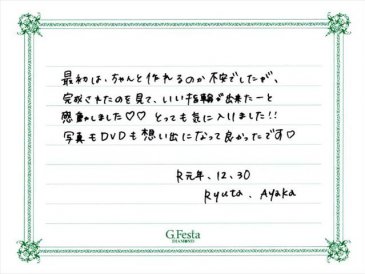 最初は、ちゃんと作れるのか不安でしたが、
完成されたのを見て、いい指輪が出来たーと
感動しました♡♡ とっても気に入りました!!
写真もDVDも想い出になって良かったです♡
R元年、12、30
Ryuta、Ayaka
G.Festa
DIAMOND